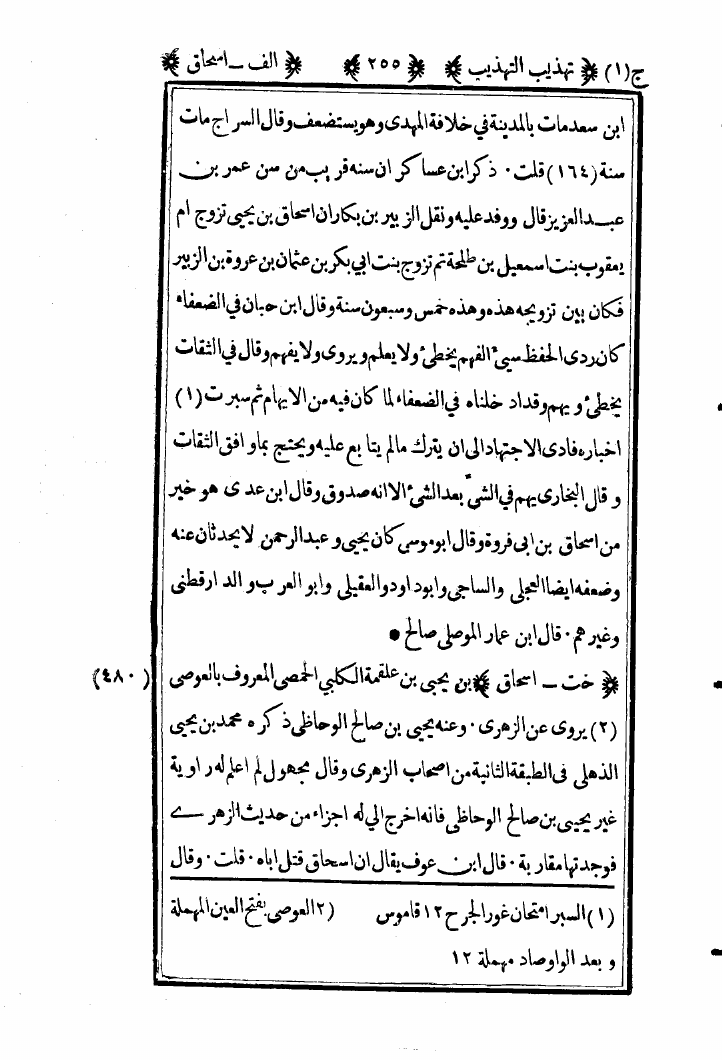 ج(١) ﴿ تهذيب التهذيب ﴾ ﴿ ٢٥٥ ﴾ ﴿ الف ـ اسحاق ﴾
ابن سعد مات بالمدينة في خلافة المهدى وهو يستضعف وقال السراج مات
سنة (١٦٤) قلت ٠ ذكر ابن عساكر ان سنه قريب من سن عمر بن
عبد العزيز قال ووفد عليه ونقل الزبير بن بكار ان اسحاق بن يحيى تزوج ام
يعقوب بنت اسمعيل بن طلحة ثم تزوج بنت ابي بكر بن عثمان بن عروة بن الزبير
فكان بين تزويجه هذه وهذه خمس وسبعون سنة وقال ابن حبان في الضعفاء
كان ردى الحفظ سيئ الفهم يخطئ ولا يعلم ويروى ولا يفهم وقال في الثقات
يخطئ ويهم وقد ادخلناه في الضعفاء لما كان فيه من الايهام ثم سبرت (١)
اخباره فادى الاجتهاد الى ان يترك مالم يتابع عليه ويحتج بما وافق الثقات
وقال البخارى يهم في الشئ بعد الشئ الا انه صدوق وقال ابن عدى هو خير
من اسحاق بن ابى فروة وقال ابو موسى كان يحيى وعبد الرحمن لا يحدثان عنه
وضعفه ايضا العجلى والساجى وابو داود والعقيلى وابو العرب والدارقطنى
وغيرهم ٠ قال ابن عمار الموصلى صالح •
﴿ خت ـ اسحاق ﴾ بن يحيى بن علقمة الكلبي الحمصى المعروف بالعوصى (٤٨٠)
(٢) يروى عن الزهرى ٠ وعنه يحيى بن صالح الوحاظى ذكره محمد بن يحيى
الذهلى فى الطبقة الثانية من اصحاب الزهرى وقال مجهول لم اعلم له راوية
غير يحيى بن صالح الوحاظى فانه اخرج الي له اجزاء من حديث الزهرى
فوجدتها مقاربة ٠ قال ابن عوف يقال ان اسحاق قتل اباه ٠ قلت ٠ وقال
(١) السبر امتحان غور الجرح ١٢ قاموس (٢ العوصى بفتح العين المهملة
وبعد الواو صاد مهملة ١٢